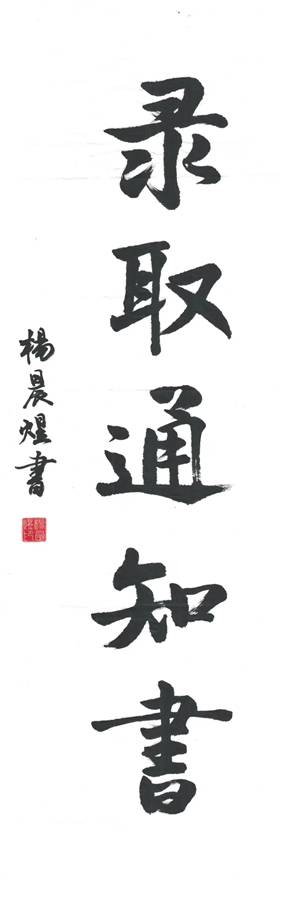 录取通知書
楊晨煜書